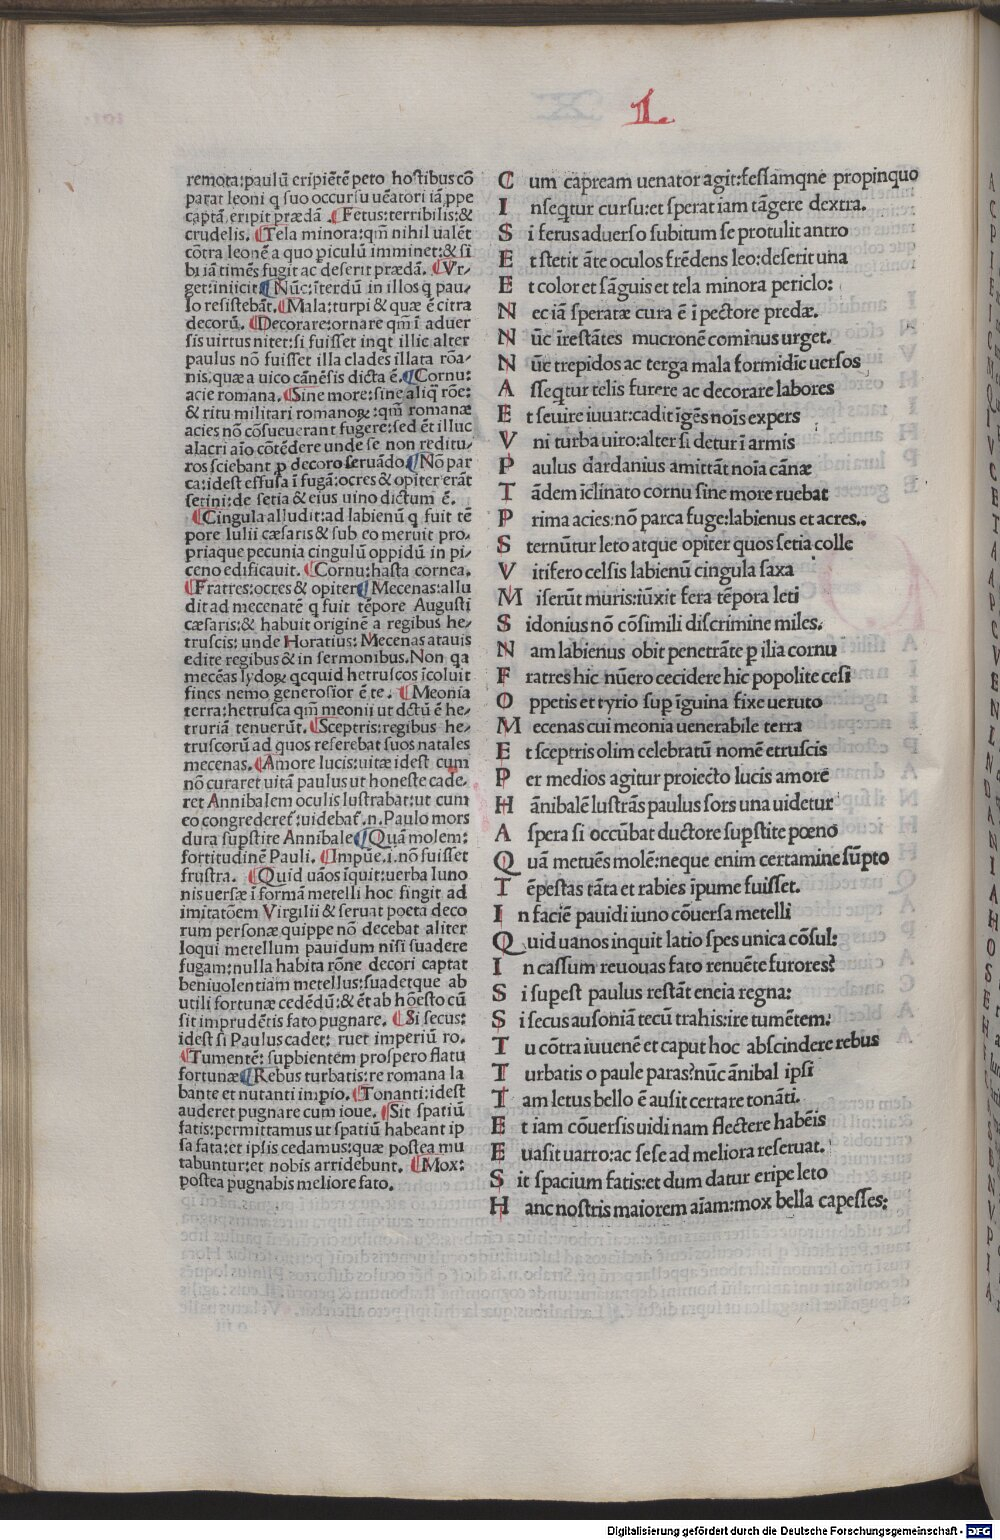 1.
remota:paulū eripiētē peto hostibus cō
parat leoni q suo occursu uēatori iā ppe
captā eripit prædā .Fetus:terribilis:&
crudelis. Tela minora:qm̄ nihil ualēt
cōtra leonē a quo piculū imminet:& si
bi iā timēs fugit ac deserit prædā. Vr-
get:iniicit Nūc:īterdū in illos q pau-
lo resistebāt. Mala:turpi & quæ ē citra
decorū. Decorare:ornare qm̄ ī aduer
sis uirtus nitet:si fuisset inqt illic alter
paulus nō fuisset illa clades illata rōa-
nis, quæ a uico cānēsis dicta ē. Cornu:
acie romana. Sine more:sine aliq̄ rōe:
& ritu militari romanoꝝ:qm̄ romanæ
acies nō cōsueuerant fugere:sed ēt illuc
alacri aīo cōtēdere unde se non reditu-
ros sciebant p decoro seruādo Nō par
ca:idest effusa ī fugā:ocres & opiter erāt
setini:de setia & eius uino dictum ē.
Cingula alludit:ad labienū q fuit tē
pore Iulii cæsaris & sub eo meruit pro-
priaque pecunia cingulū oppidū in pi-
ceno edificauit. Cornu:hasta cornea.
Fratres:ocres & opiter Mecenas:allu
dit ad mecenatē q fuit tēpore Augusti
cæsaris:& habuit originē a regibus he-
truscis: unde Horatius: Mecenas atauis
edite regibus & in sermonibus. Non qa
mecēas lydoꝝ qcquid hetruscos īcoluit
fines nemo generosior ē te. Meonia
terra:hetrusca qm̄ meonii ut dctū ē he-
truriā tenuerūt. Sceptris:regibus he-
truscorū ad quos referebat suos natales
mecenas. Amore lucis:uitæ idest cum
nō curaret uitā paulus ut honeste cade-
ret Annibalem oculis lustrabat:ut cum
eo congrederet:uidebat .n. Paulo mors
dura supstite Annibale Quā molem:
fortitudinē Pauli. Impūe.i.nō fuisset
frustra. Quid uāos īquit:uerba Iuno
nis uersæ ī formā metelli hoc fingit ad
imitatōem Virgilii & seruat poeta deco
rum personæ quippe nō decebat aliter
loqui metellum pauidum nisi suadere
fugam:nulla habita rōne decori captat
beniuolentiam metellus:suadetque ab
utili fortunæ cedēdū:& ēt ab hōesto cū
sit imprudētis fato pugnare. Si secus:
idest si Paulus cadet: ruet imperiū ro.
Tumentē: supbientem prospero flatu
fortunæ Rebus turbatis:re romana la
bante et nutanti impio. Tonanti:idest
auderet pugnare cum ioue. Sit spatiū
fatis:permittamus ut spatiū habeant ip
sa fata:et ipsis cedamus:quæ postea mu
tabuntur:et nobis arridebunt. Mox:
postea pugnabis meliore fato.
C um capream uenator agit:fessamqne propinquo
I nseqtur cursu:et sperat iam tāgere dextra.
S i ferus aduerso subitum se protulit antro
E t stetit āte oculos frēdens leo:deserit una
E t color et sāguis et tela minora periclo:
N ec iā speratæ cura ē ī pectore predæ.
N ūc īrestātes mucronē cominus urget.
N ūc trepidos ac terga mala formidīe uersos
A sseqtur telis furere ac decorare labores
E t seuire iuuat:cadit īgēs noīs expers
V ni turba uiro:alter si detur ī armis
P aulus dardanius amittāt noīa cānæ
T ādem īclinato cornu sine more ruebat
P rima acies:nō parca fuge:labienus et acres..
S ternūtur leto atque opiter quos setia colle
V itifero celsis labienū cingula saxa
M iserūt muris:iūxit fera tēpora leti
S idonius nō cōsimili discrimine miles.
N am labienus obit penetrāte p ilia cornu
F ratres hic nūero cecidere hic popolite cesi
O ppetis et tyrio sup īguina fixe ueruto
M ecenas cui meonia uenerabile terra
E t sceptris olim celebratū nomē etruscis
P er medios agitur proiecto lucis amore
H ānibalē lustrās paulus sors una uidetur
A spera si occūbat ductore supstite poeno
Q uā metuēs molē:neque enim certamine sūpto
T ēpestas tāta et rabies īpume fuisset.
I n faciē pauidi iuno cōuersa metelli
Q uid uanos inquit latio spes unica cōsul:
I n cassum reuouas fato renuēte furores?
S i supest paulus restāt eneia regna:
S i secus ausoniā tecū trahis:ire tumētem.
T u cōtra iuuenē et caput hoc abscindere rebus
T urbatis o paule paras?nūc ānibal ipsi
T am letus bello ē ausit certare tonāti.
E t iam cōuersis uidi nam flectere habēis
E uasit uarro:ac sese ad meliora reseruat.
S it spacium fatis:et dum datur eripe leto
H anc nostris maiorem aīam:mox bella capesses:
Digitalisierung gefördert durch die Deutsche Forschungsgemeinschaft - DFG